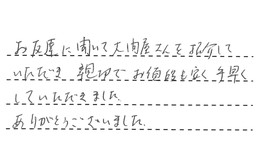 お友達に聞いて大内屋さんを紹介して
いただき 親切でお値段も安く手早く
していただきました。
ありがとうございました。